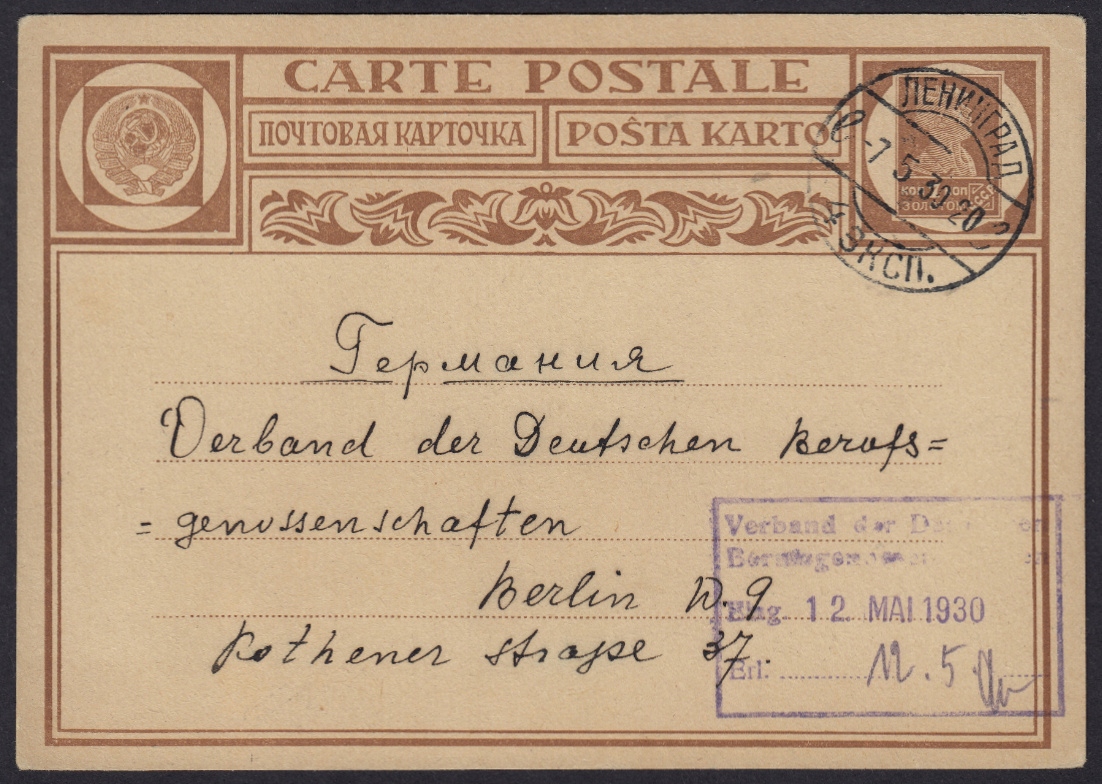 CARTE POSTALE
ПОЧТОВАЯ КАРТОЧКА
POŜTA KARTO
ЛЕНИНГРАД
-7 5 30 20
4 ЭКСП.
ЗОЛОТОМ
Германия
Verband der Deutschen Berufs=
= genossenschaften
Berlin W. 9
Kothener strasse 37.
Verband der
Eing. 12. MAI 1930
Erl: 12.5